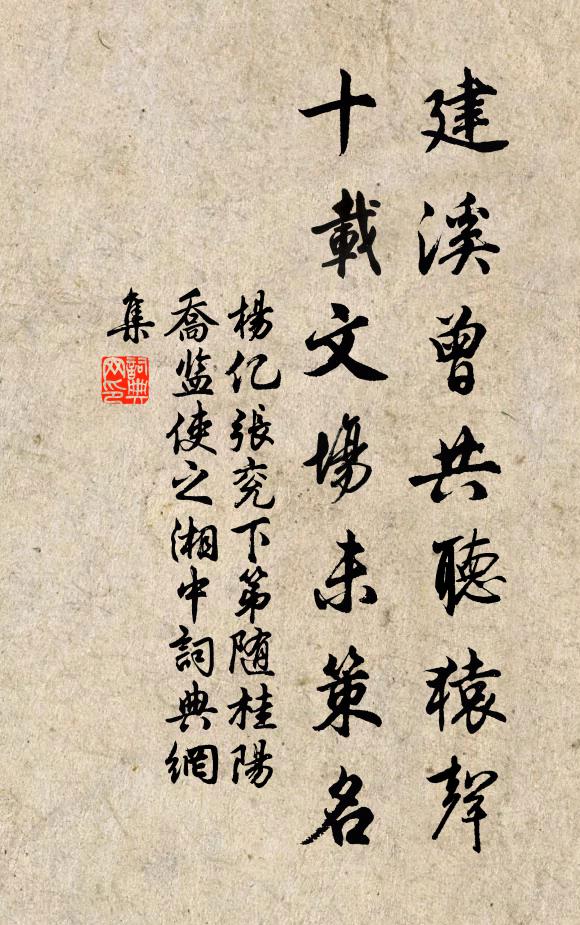 建溪曾共聽猿聲
十載文場未策名
楊亿張兖下第随桂陽
喬监使之湘中詞典網
集
詞典网印